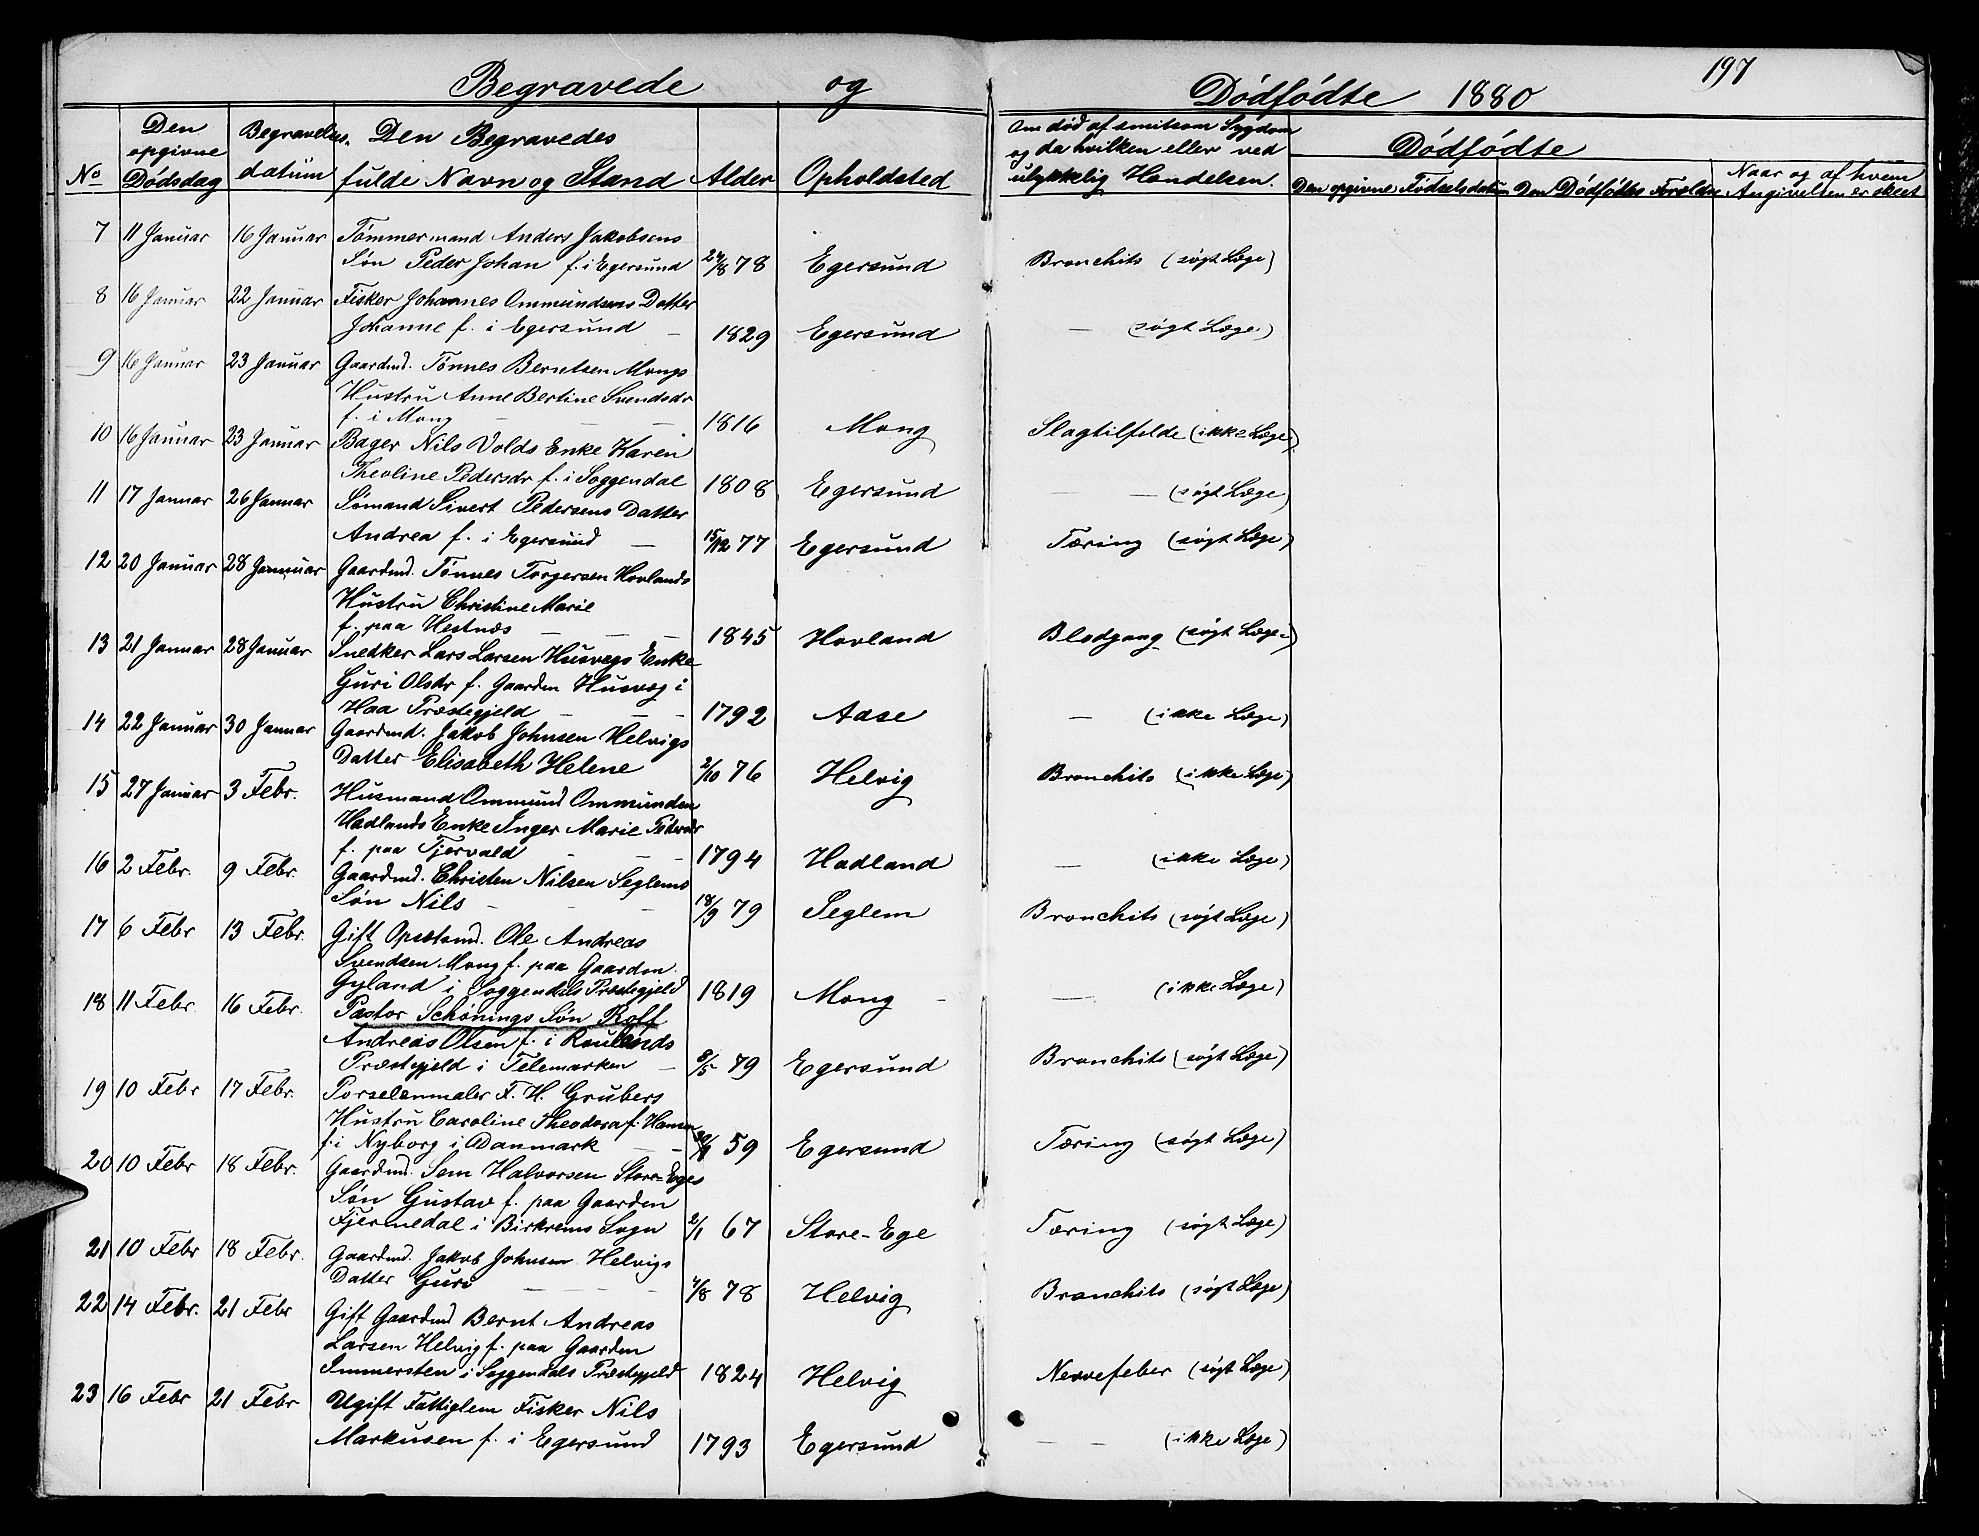 Begravede og Dödfödte 1880 197
No
Den opgivne Dödsdag
Begravelses datum
Den Begravedes fulde Navn og Stand
Alder
Opholdsted
Om död af smitsom Sygdom og da hvilken eller ved ulykkelig Hændelsen.
Dödfödte
Den opgivne Fødselsdatum
Den Dödfödtes Forældre
Naar og af hvem Angivelsen er skeet
7 11 Januar 16 Januar Tømmermand Anders Jakobsens
Søn Peder Johan f. i Egersund 24/8 78 Egersund Bronchits (søgt Læge)
8 16 Januar 22 Januar Fisker Johannes Ommundsens Datter
Johanne f. i Egersund — 1829 Egersund — (søgt Læge)
9 16 Januar 23 Januar Gaardmd. Tønnes Berntsen Mongs
Hustru Anne Bertine Svendsdr
f. i Mong — — 1816 Mong Slagtilfelde (ikke Læge)
10 16 Januar 23 Januar Bager Nils Volds Enke Karen
Theoline Pedersdr f. i Soggendal 1808 Egersund — — (søgt Læge)
11 17 Januar 26 Januar Sømand Sivert Pedersens Datter
Andrea f. i Egersund — 15/12 77 Egersund Tæring (søgt Læge)
12 20 Januar 28 Januar Gaardmd. Tönnes Torgersen Hovlands
Hustru Christine Marie
f. paa Hestnæs — — — 1845 Hovland Blodgang (søgt Læge)
13 21 Januar 28 Januar Snedker Lars Larsen Husvegs Enke
Guri Olsdr f. Gaarden Husvæg i
Haa Præstegjeld — — — 1792 Aase — (ikke Læge)
14 22 Januar 30 Januar Gaardmd. Jakob Johnsen Helvigs
Datter Elisabeth Helene 2/10 76 Helvig Bronchits (ikke Læge)
15 27 Januar 3 Febr. Husmand Ommund Ommunden
Hadlands Enke Inger Marie Pedersdr
f. paa Tjervald — — — 1794 Hadland — (ikke Læge)
16 2 Febr. 9 Febr. Gaardmd. Christen Nilsen Seglems
Søn Nils — — — 18/9 79 Seglem Bronchits (søgt Læge)
17 6 Febr 13 Febr. Gift Opsetsmd. Ole Andreas
Svendsen Mong f. paa Gaarden
Gyland i Soggendals Præstegjeld 1819 Mong — — (ikke Læge)
18 11 Febr. 16 Febr. Pastor Schönings Søn Rolf
Andreas Olsen f. i Raulands
Præstegjeld i Telemarken — 8/5 79 Egersund Bronchits (søgt Læge)
19 10 Febr 17 Febr. Porselenmaler F. H. Grubers
Hustru Caroline Theodora f. Hansen
f. i Nyborg i Danmark — — 59 Egersund Tæring (søgt Læge)
20 10 Febr 18 Febr. Gaardmd. Sem Halvorsen Store-Eges
Søn Gustav f. paa Gaarden
Fjermedal i Birkrems Sogn 2/1 67 Store-Ege Tæring (søgt Læge)
21 10 Febr 18 Febr. Gaardmd. Jakob Johnsen Helvigs
Datter Guri — — — 4/8 78 Helvig Bronchits (søgt Læge)
22 14 Febr. 21 Febr Gift Gaardmd Bernt Andreas
Larsen Helvig f. paa Gaarden
Immersten i Soggendals Præstegjeld 1824 Helvig Nervefeber (søgt Læge)
23 16 Febr 21 Febr Ugift Fattiglem Fisker Nils
Markusen f. i Egersund 1793 Egersund — — (ikke Læge)